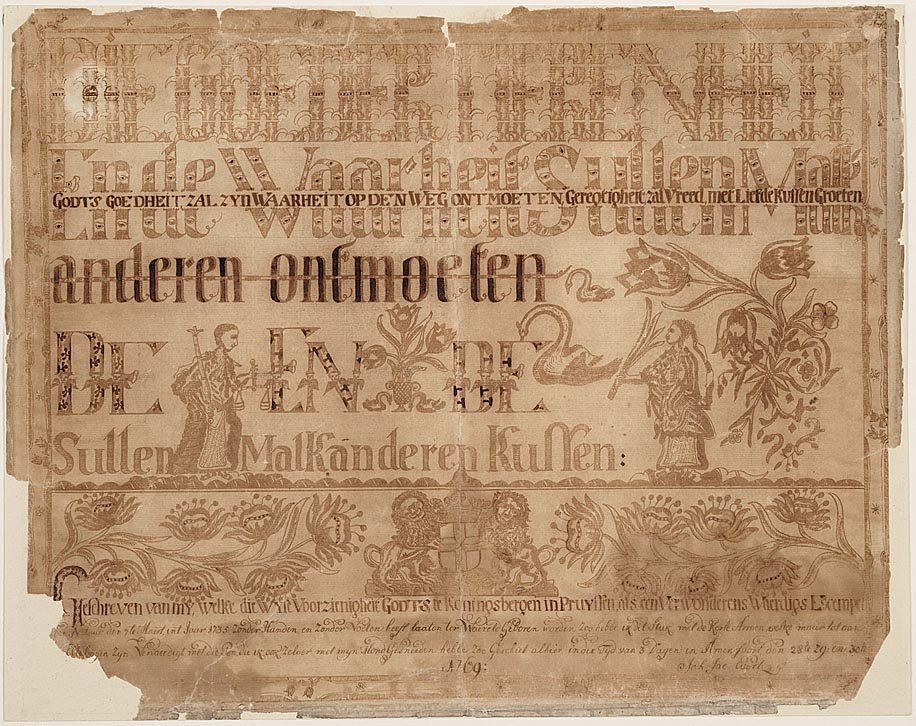 DE GOEDERTIERENHEID
En de Waar-heit Sullen Malk
GODTS GOEDHEIT ZAL ZYN WAARHEIT OP DEN WEG ONTMOETEN, Geregtigheit zal Vreed met Liefde kussen Groeten
anderen ontmoeten
DE EN DE
Sullen Malkanderen Kussen:
Geschreven van my, Welke die Wyse Voorzienigheit GODTS te Koningsbergen in Pruyssen, als een Verwonderens Wierdigs Exempel
den 7te Maert, int Jaar 1735 zonder Handen en zonder Voeten heeft laaten ter Waereld Geboren worden zoo hebbe ik dit stuk met de Korte Armen, welke maar tot aan
zyn met de Pen die ik met myn Mond hebbe Zoo Geschiet alhier in die Tyd van 3 Dagen in Amersfoort den 28te 29: en 30te
1769: